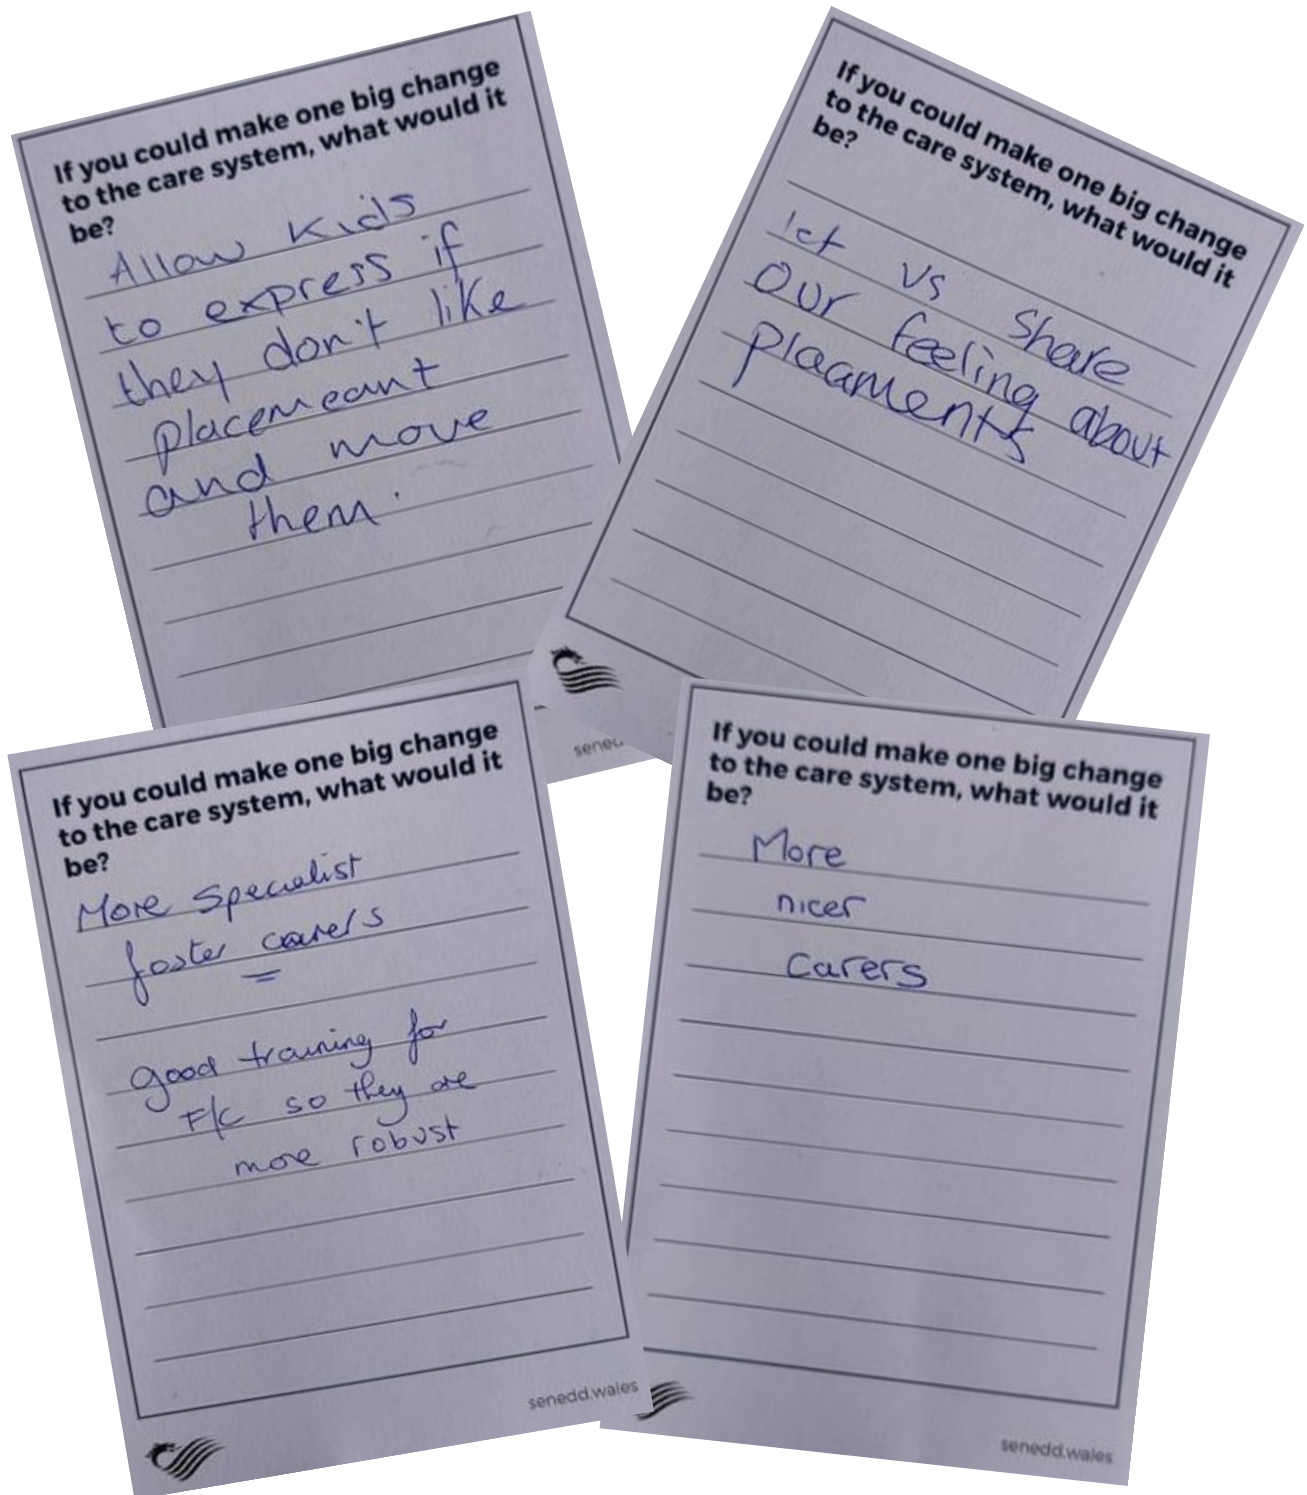 If you could make one big change
to the care system, what would it
be?
Allow Kids
to express if
they don't like
placemeant
and move
them.
If you could make one big change
to the care system, what would it
be?
let us share
Our feeling about
plaaments
If you could make one big change
to the care system, what would it
be?
More specialist
foster carers
good training for
F/C so they are
more robust
senedd.wales
If you could make one big change
to the care system, what would it
be?
More
nicer
Carers
senedd.wales